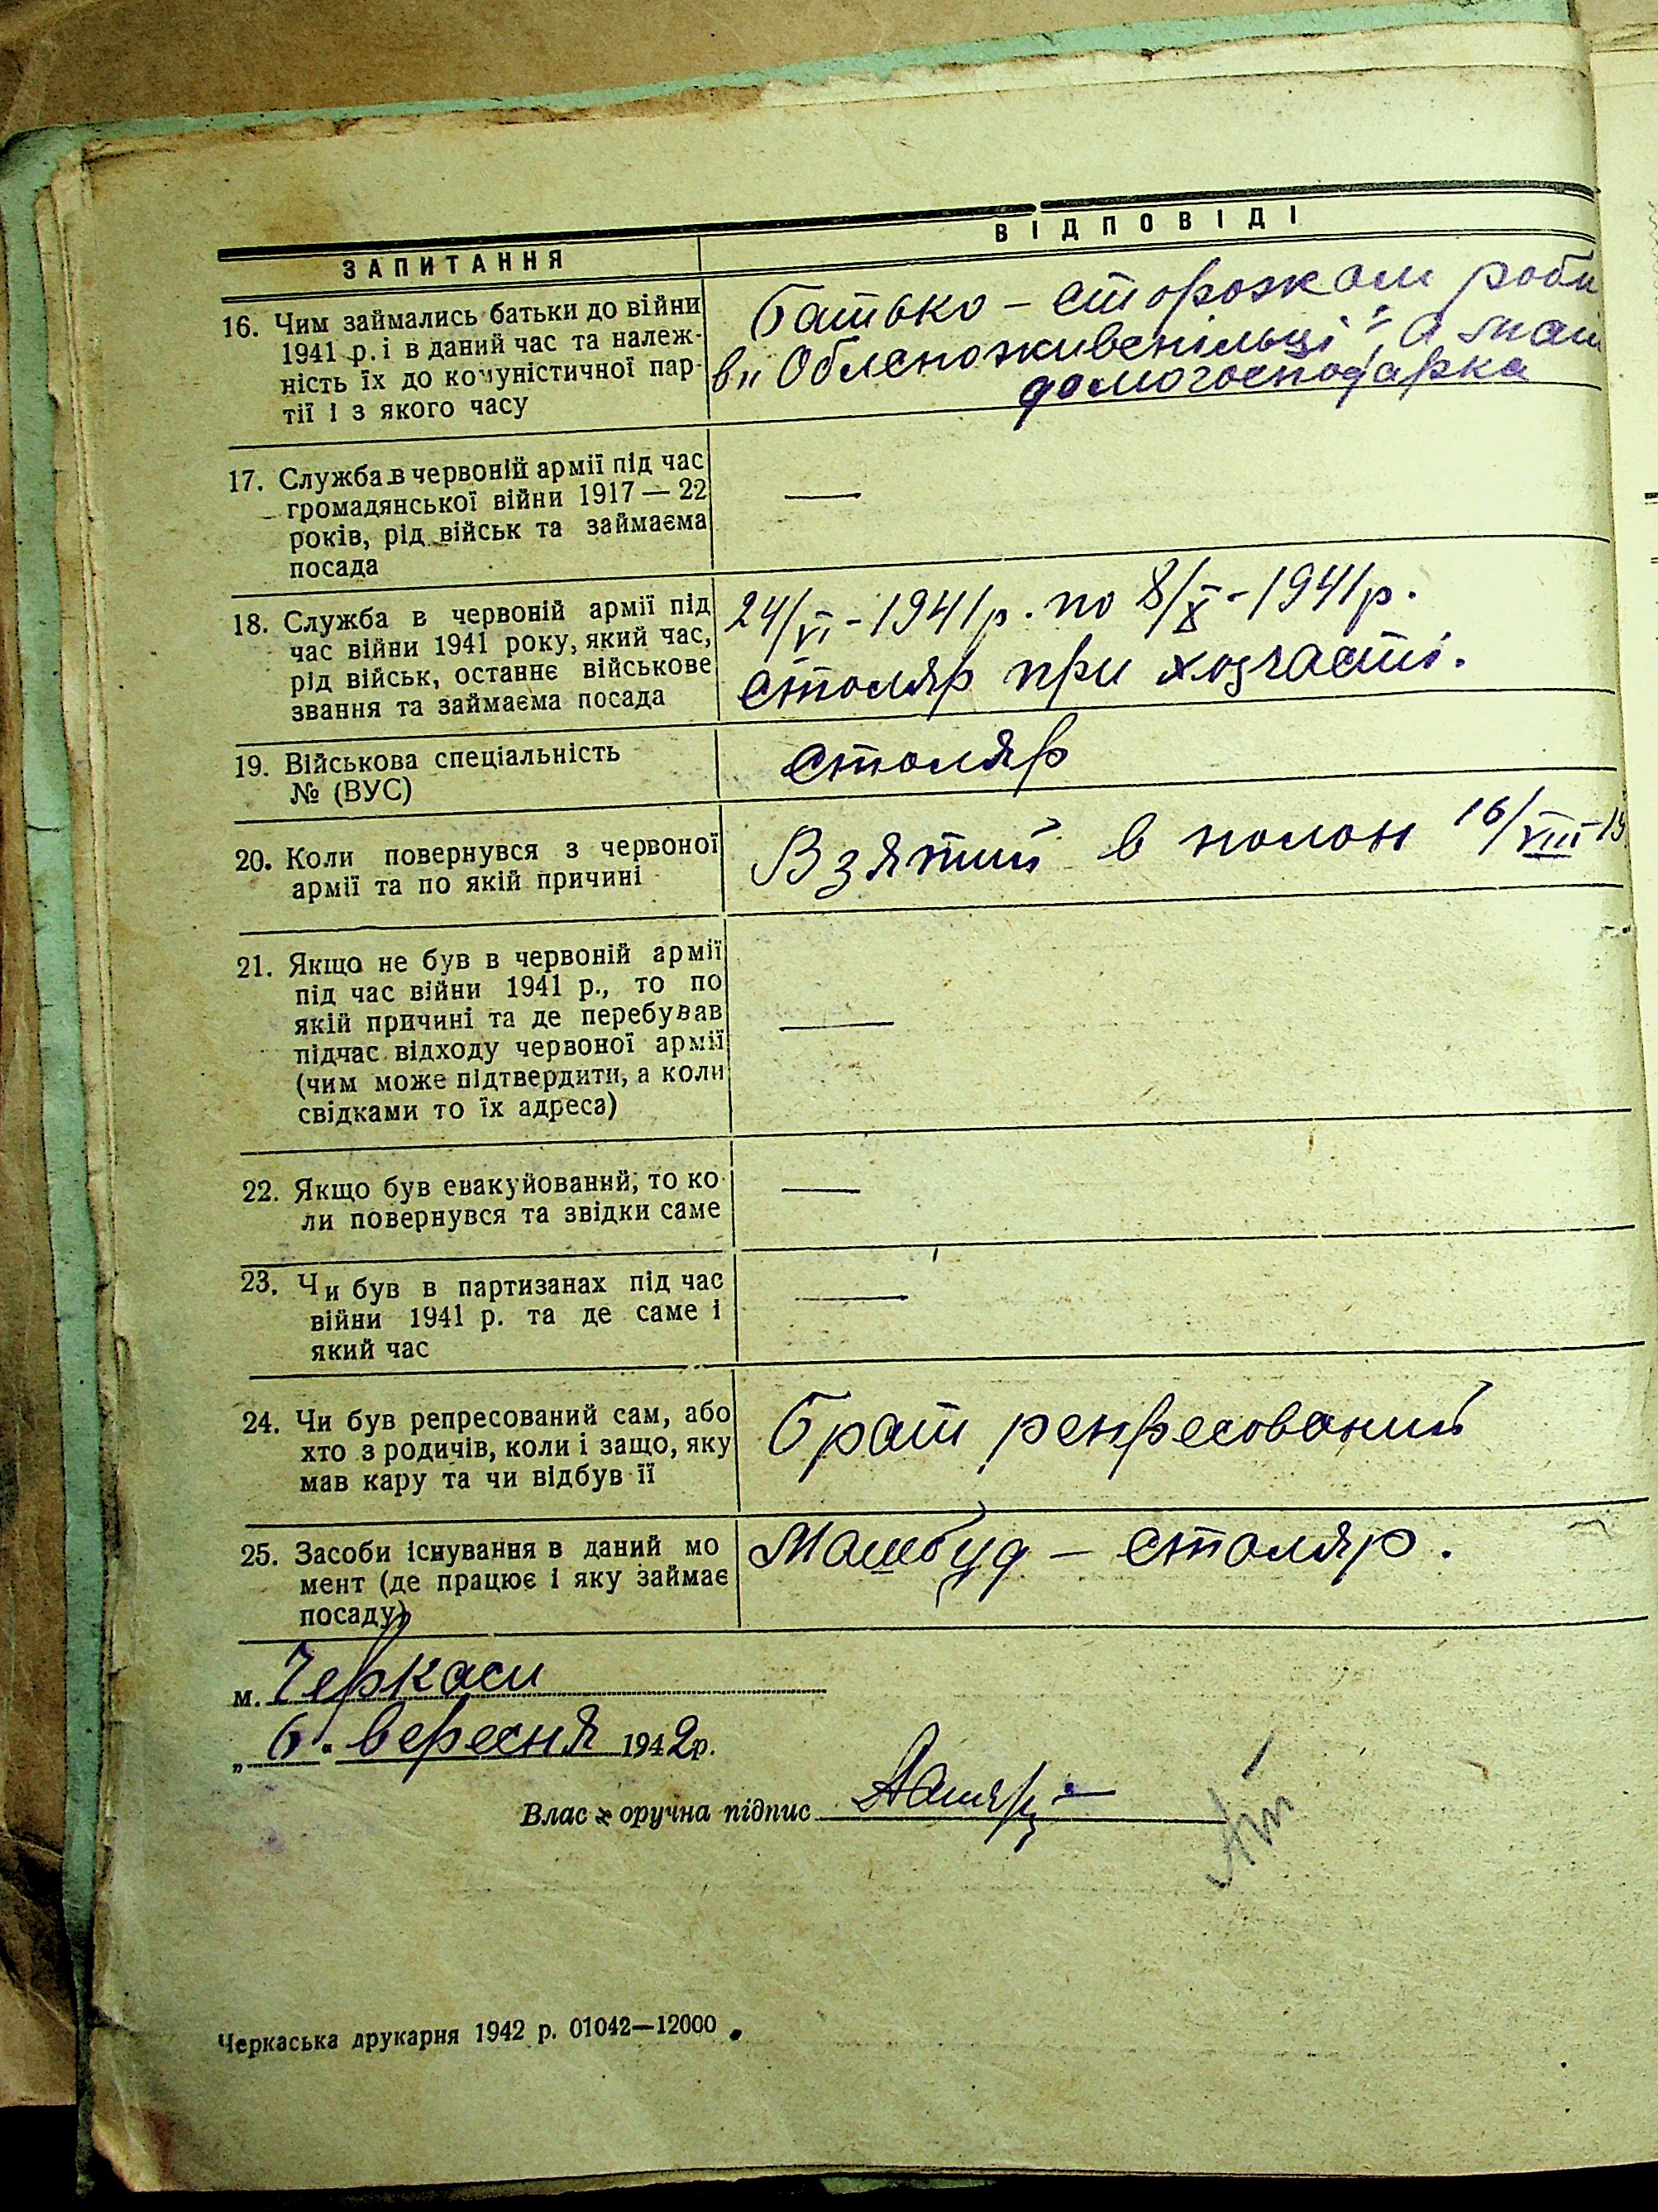 ЗАПИТАННЯ
ВІДПОВІДІ
16. Чим займались батьки до війни
1941 р. і в даний час та належ-
ність їх до комуністичної пар-
тії і з якого часу
Батько – сторожем роби
в „Облспоживспільці", а мати
домогосподарка
17. Служба в червоній армії під час
громадянської війни 1917 — 22
років, рід військ та займаєма
посада
—
18. Служба в червоній армії під
час війни 1941 року, який час,
рід військ, останнє військове
звання та займаєма посада
24/VI - 1941 р. по 8/X - 1941 р.
столяр при хозчасті.
19. Військова спеціальність
№ (ВУС)
столяр
20. Коли повернувся з червоної
армії та по якій причині
Взятий в полон 16/VIII-19
21. Якщо не був в червоній армії
під час війни 1941 р., то по
якій причині та де перебував
підчас відходу червоної армії
(чим може підтвердити, а коли
свідками то їх адреса)
—
22. Якщо був евакуйований, то ко-
ли повернувся та звідки саме
—
23. Чи був в партизанах під час
війни 1941 р. та де саме і
який час
—
24. Чи був репресований сам, або
хто з родичів, коли і защо, яку
мав кару та чи відбув її
Брат репресований
25. Засоби існування в даний мо
мент (де працює і яку займає
посаду)
Машбуд – столяр.
м. Черкаси
„ 6 " вересня 1942 р.
Власноручна підпис
Черкаська друкарня 1942 р. 01042—12000